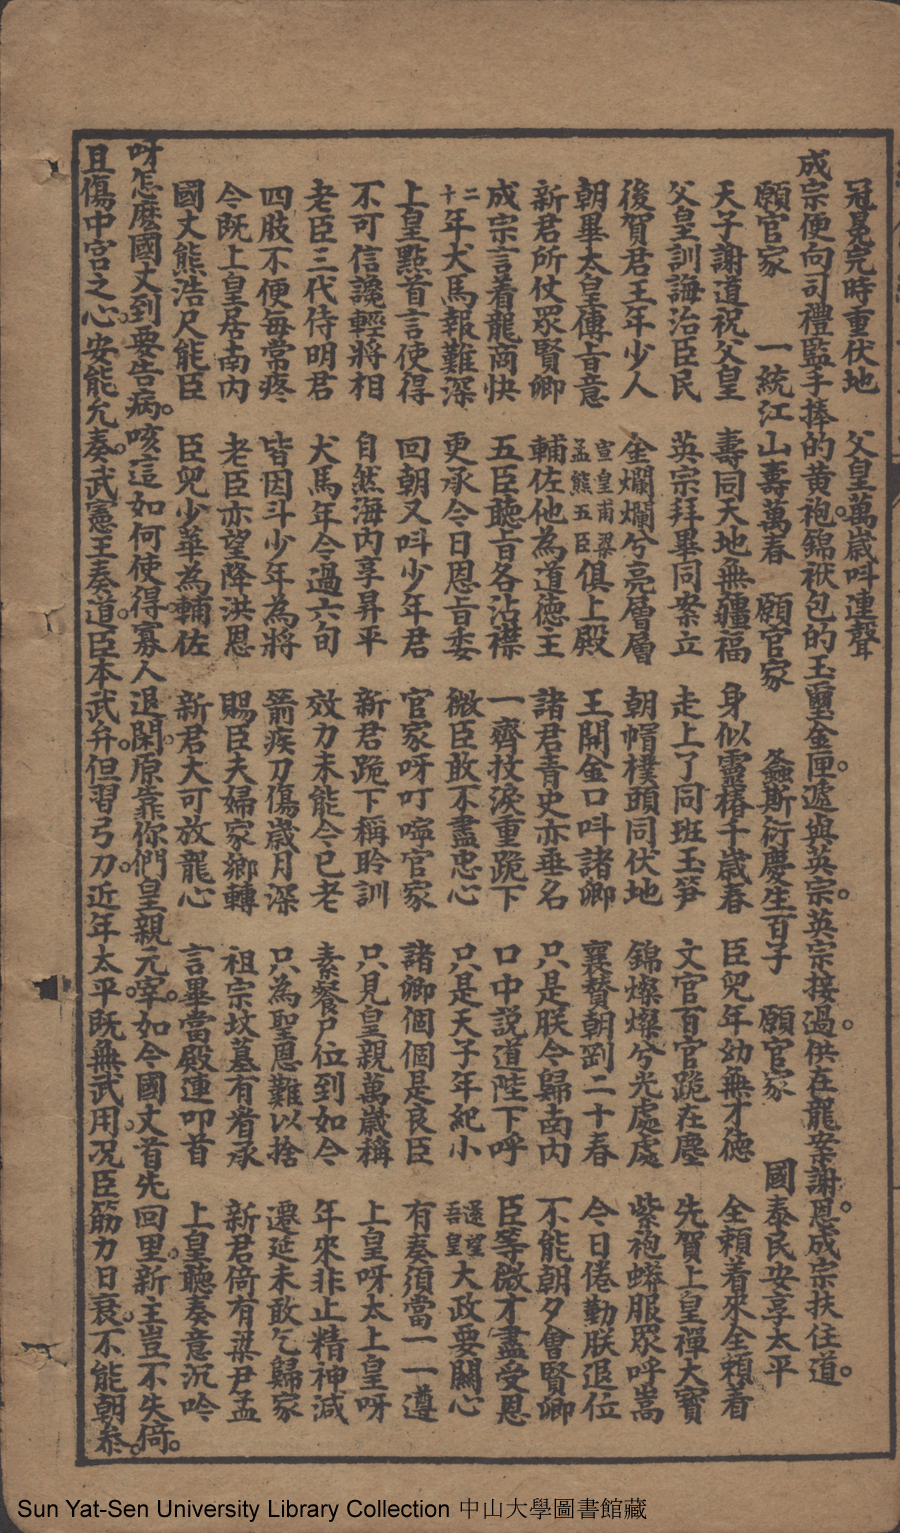 冠冕完時重伏地　父皇萬歲呌連聲
成宗便向司禮監手捧的黃袍。錦袱包的玉璽金匣。遞與英宗。英宗接過。供在龍案謝恩。成宗扶住道。
願官家　一統江山壽萬春　願官家　螽斯衍慶生百子　願官家　國泰民安享太平
天子謝道祝父皇　壽同天地無疆福　身似靈椿千歲春　臣兒年幼無才德　全賴着來全賴着
父皇訓誨治臣民　英宗拜畢同案立　走上了同班玉笋　文官百官跪在塵　先賀上皇禪大寶
後賀君王年少人　金爛爛兮亮層層　朝帽樸頭同伏地　錦燦燦兮光處處　紫袍蟒服眾呼嵩
朝畢太皇傳旨意　宣皇甫梁孟熊五臣俱上殿　王開金口呌諸卿　襄贊朝劉二十春　今日倦勤朕退位
新君所仗眾賢卿　輔佐他為道德王　諸君青史亦垂名　只是朕今歸南內　不能朝夕會賢卿
成宗言着龍商快　五臣聽旨各沾襟　一齊抆淚重跪下　口中說道陛下呼　臣等微才盡受恩
二十年犬馬報難深　更承今日恩旨委　微臣敢不盡忠心　只是天子年紀小　還望吾皇大政要關心
上皇點首言使得　回朝又呌少年君　官家呀叮嚀官家　諸卿個個是良臣　有奏須當一一遵
不可信讒輕將相　自然海內享昇平　新君跪下稱聆訓　只見皇親萬歲稱　上皇呀太上皇呀
老臣三代侍明君　犬馬年今過六旬　效力未能今已老　素餐尸位到如今　年來非止精神減
四肢不便每常疼　皆因斗少年為將　箭疾刀傷歲月深　只為聖恩難以捨　遷延未敢乞歸家
今既上皇居南內　老臣亦望降洪恩　賜臣夫婦家鄉轉　祖宗坟墓有者承　新君倚有梁尹孟
國丈熊浩尺能臣　臣兒少華為輔佐　新君大可放龍心　言畢當殿連叩首　上皇聽奏意沉吟
呀怎麽國丈到要告病。咳這如何使得寡人退閑。原靠你們皇親元宰。如今國丈首先回里。新王豈不失倚。
且傷中宮之心。安能允奏。武憲王奏道。臣本武弁。但習弓刀。近年太平。既無武用。況臣筋力日衰。不能朝叅。